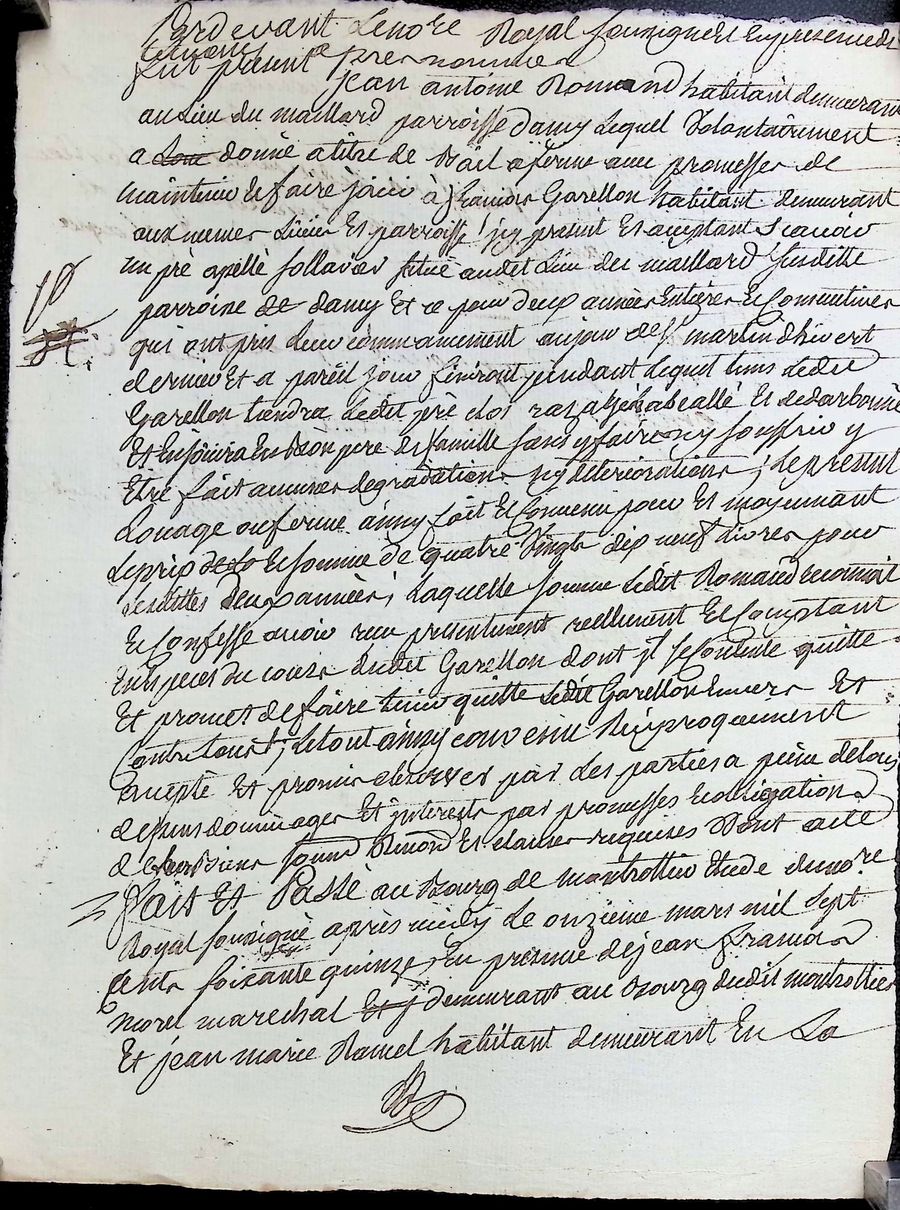 Pardevant Lenore Royal soussigné et en presence des
temoins
fut present prenommé
jean antoine Romand habitant demeurant
au Lieu du maillard parroisse damy Lequel volontairement
a donné a titre de Bail a ferme avec promesses de
maintenir et faire jouir à francois Garellon habitant demeurant
aux memes Lieu et parroisse jcy present et acceptant scavoir
un pré apellé follavar situé audit Lieu du maillard susditte
parroisse de damy et ce pour deux années Entieres et Consecutives
qui ont pris leur commancement au jour de st martin dhivert
dernier et a pareil jour finiront, pendant lequel tems Ledit
Garellon tiendra Ledit pré clos et
Et En jouira En Bon pere de famille sans y faire ny souffrir y
Etre fait aucunes degradations ny deteriorations ; Le present
Louage ou ferme ainsy fait et Convenu pour Et moyennant
Le prix et somme de quatre Vingt dix neuf Livres pour
desdittes Deux années ; Laquelle somme Ledit Romand reconnoit
Et Confesse avoir recu presentement reellement et Comptant
En Especes du cours dudit Garellon dont jl se Contente quitte
Et promet de faire tenir quitte Ledit Garellon Envers Et
Contre tous ; Le tout ainsy convenu Reciproquement
accepté Et promis observer par Les parties a peine de tous
depens dommages Et jnterests par promesses et obligations
de biens soumis Renond Et clauses requises Dont acte
Fait Et Passé au Bourg de montrottier Etude du nore
Royal soussigné après midy Le onzieme mars mil sept
cents soixante quinze, En presence de jean francois
morel marechal demeurant au Bourg dudit montrottier
Et jean marie Ramel habitant demeurant En La